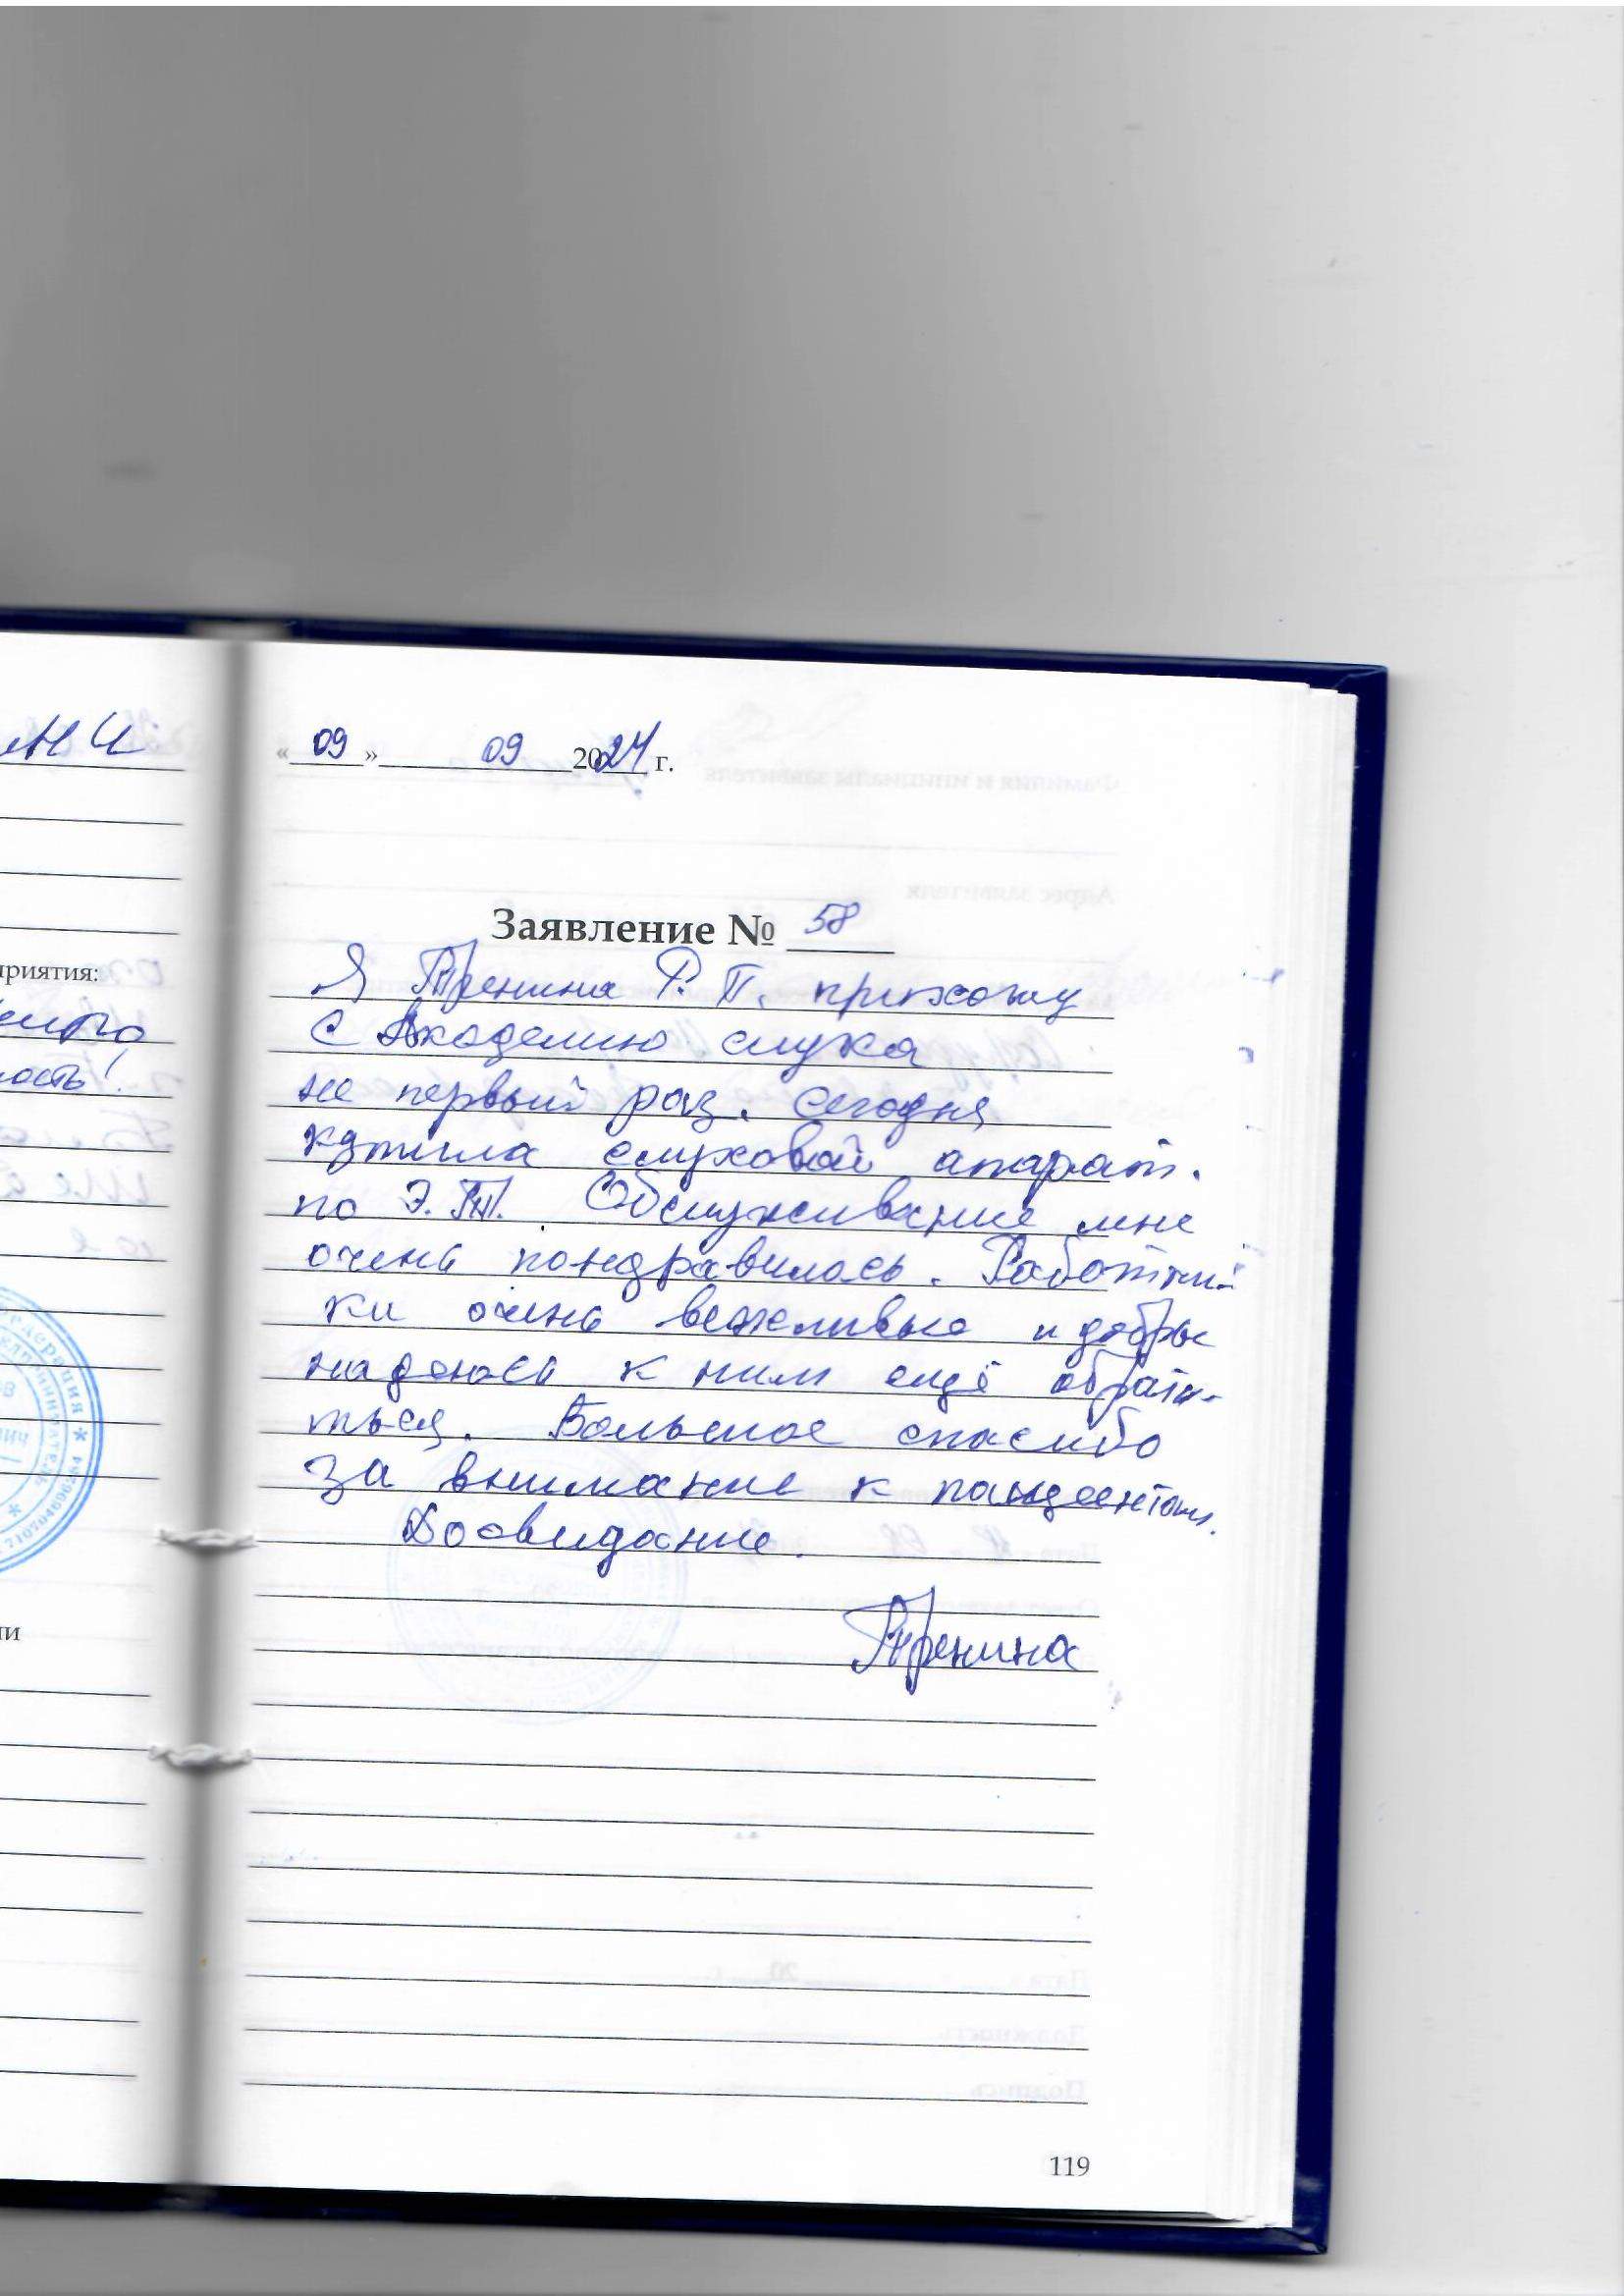 МИ
приятия:
ность!
ЕДЕРАЦИЯ *
ПРЕДПРИНИМАТЕЛЬ
ИИ
« 09 » 09 2024 г.
Заявление № 58
Я Тренина Р. П. прихожу
С Академию слуха
не первый раз. Сегодня
купила слуховой апарат.
по Э.ТП. Обслуживание мне
очень пондравилось. Работни-
ки очень вежливые и добры
надеюсь к ним ещё обрати-
ться. Большое спасибо
за внимание к пациентам.
Досвидание.
Тренина
119